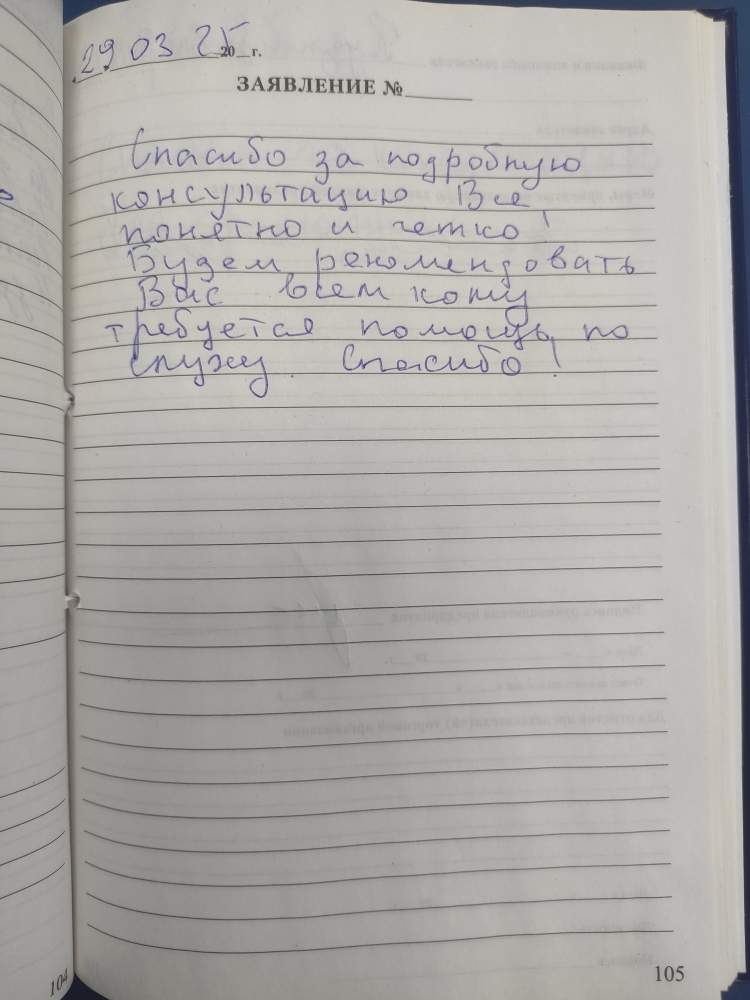 29 03 25 20 г.
ЗАЯВЛЕНИЕ №
Спасибо за подробную
консультацию Все
понятно и четко!
Будем рекомендовать
Вас всем кому
требуется помощь по
слуху. Спасибо!
104
105